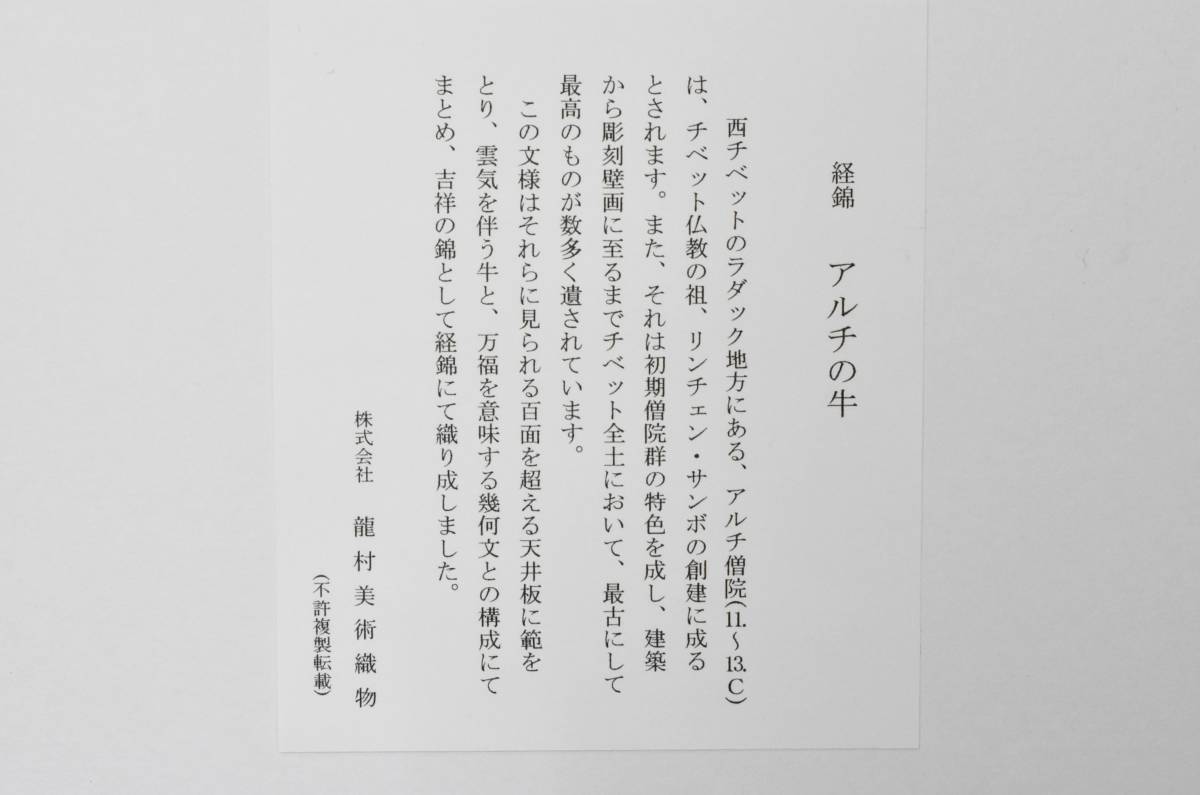 経錦　アルチの牛
西チベットのラダック地方にある、アルチ僧院(11.〜13.C)
は、チベット仏教の祖、リンチェン・サンボの創建に成る
とされます。また、それは初期僧院群の特色を成し、建築
から彫刻壁画に至るまでチベット全土において、最古にして
最高のものが数多く遺されています。
この文様はそれらに見られる百面を超える天井板に範を
とり、雲気を伴う牛と、万福を意味する幾何文との構成にて
まとめ、吉祥の錦として経錦にて織り成しました。
株式会社　龍村美術織物
(不許複製転載)